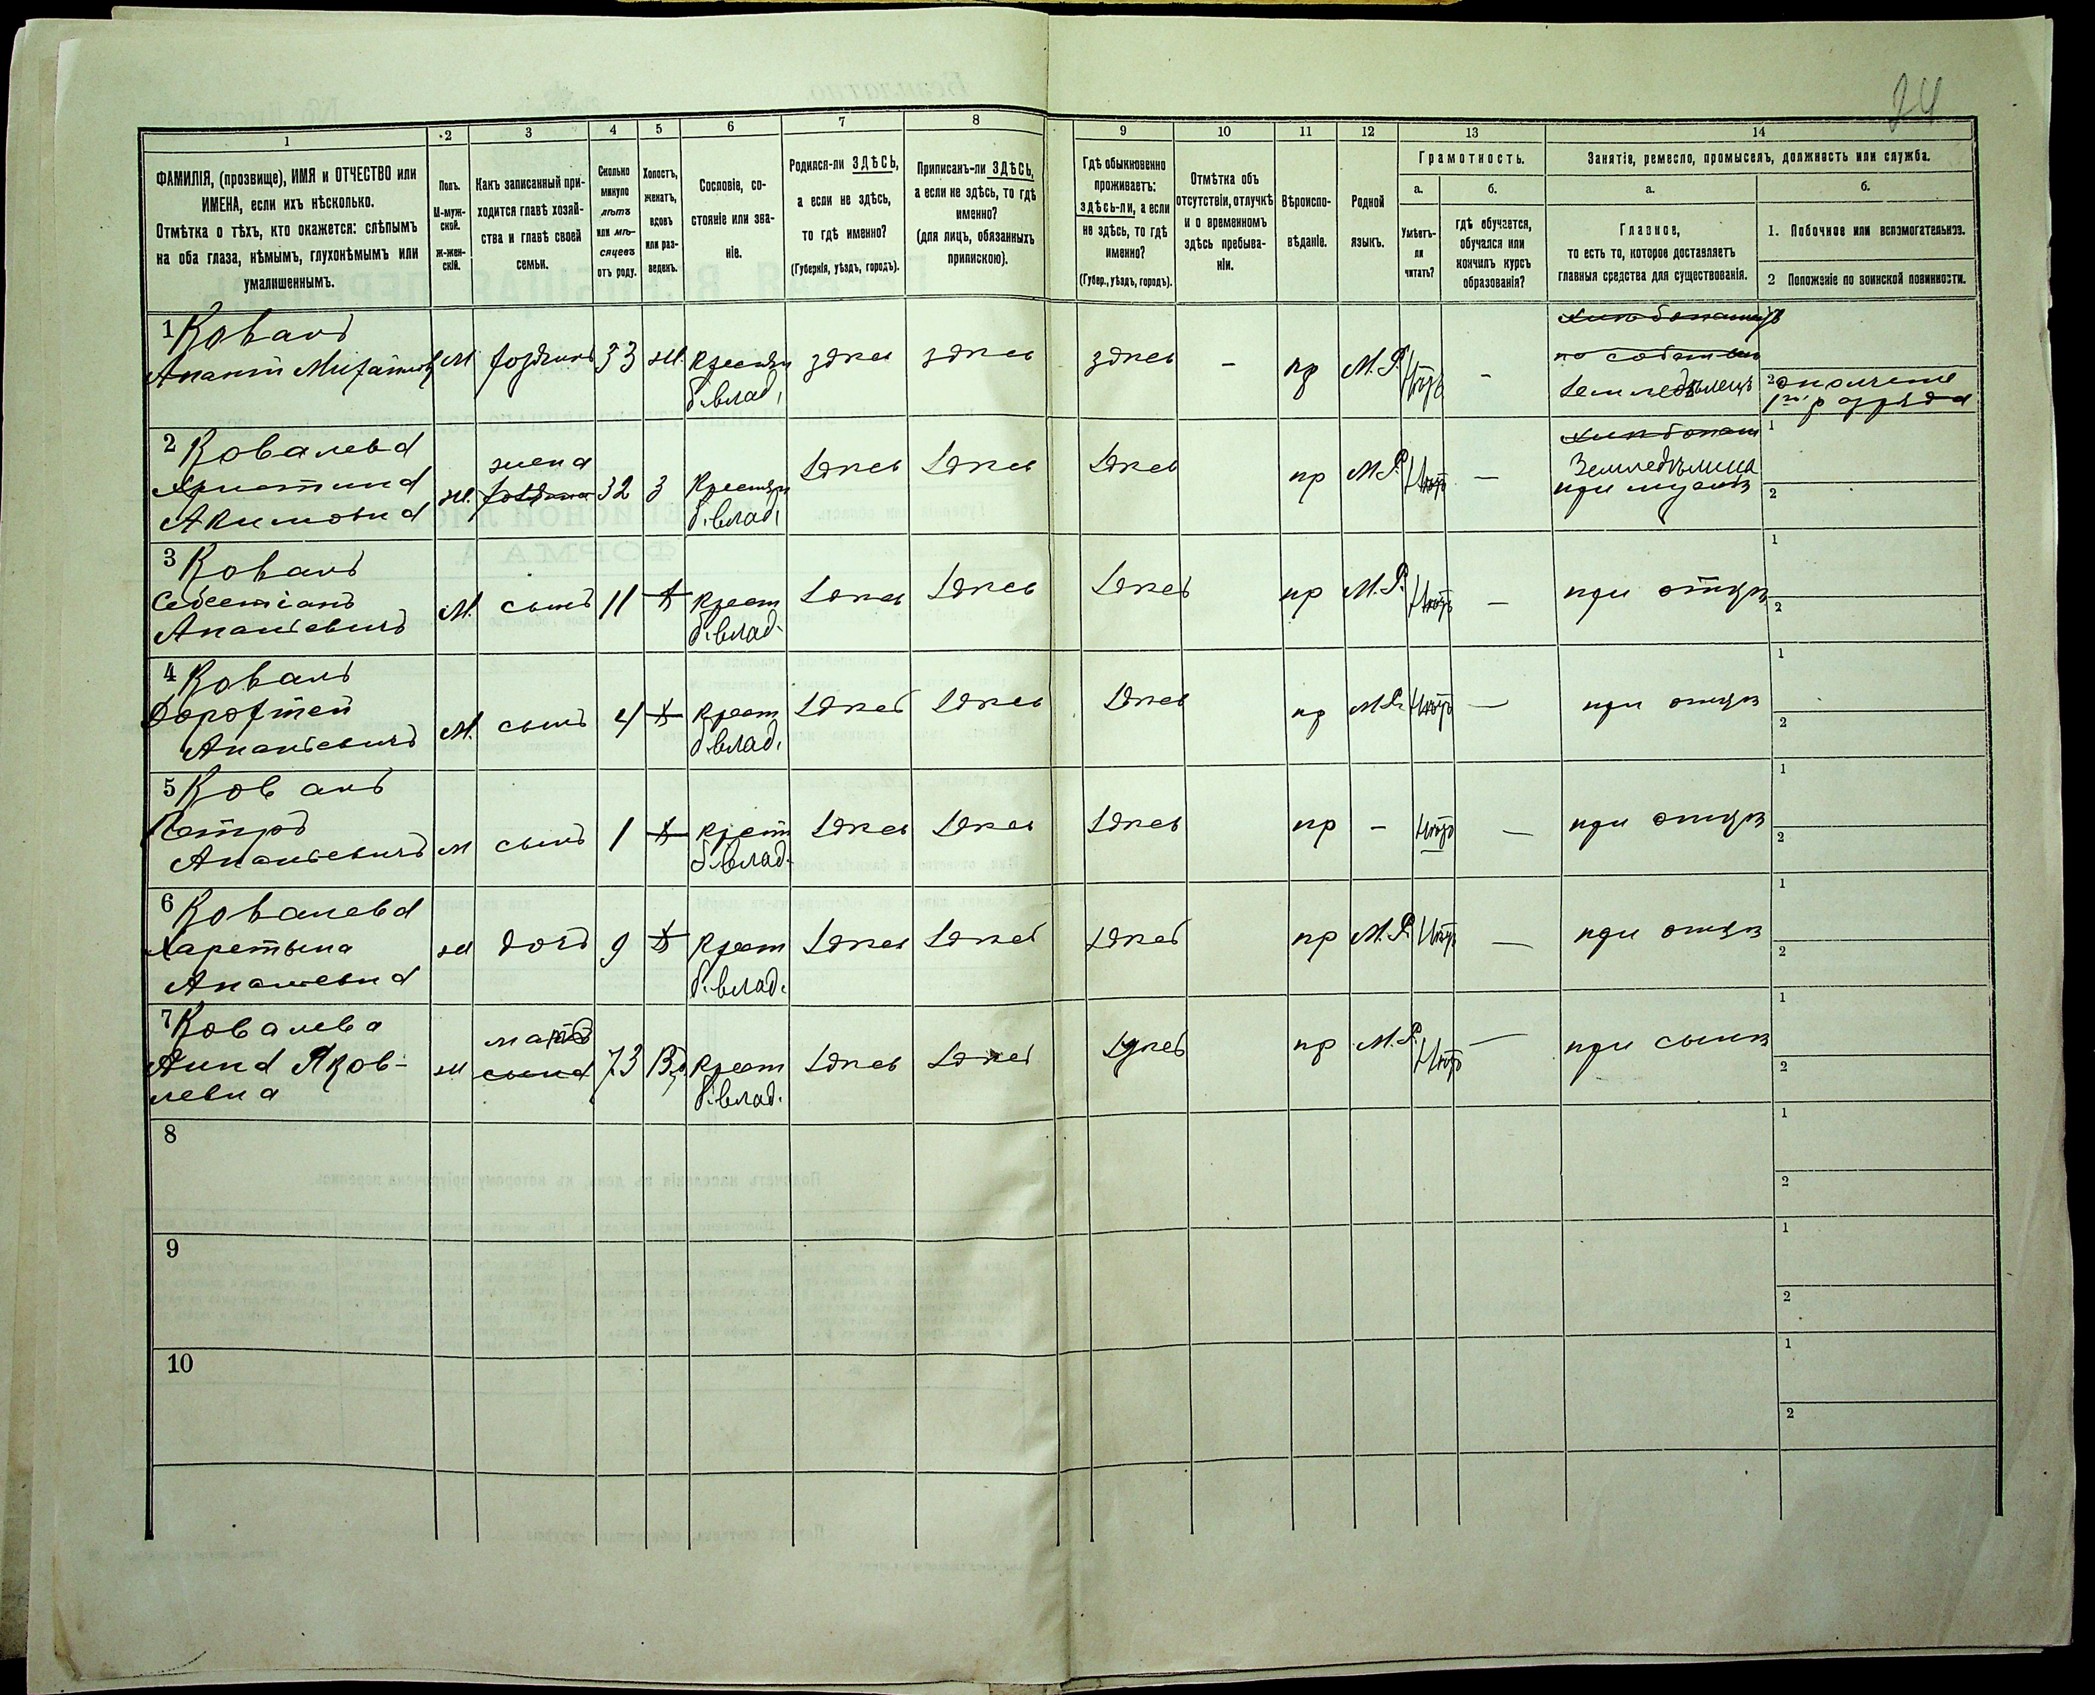 24
1 2 3 4 5 6 7 8 9 10 11 12 13 14
ФАМИЛІЯ, (прозвище), ИМЯ и ОТЧЕСТВО или
ИМЕНА, если ихъ нѣсколько.
Отмѣтка о тѣхъ, кто окажется: слѣпымъ
на оба глаза, нѣмымъ, глухонѣмымъ или
умалишеннымъ.
Полъ.
М-муж-
ской.
Ж-жен-
скій.
Какъ записанный при-
ходится главѣ хозяй-
ства и главѣ своей
семьи.
Сколько
минуло
лѣтъ
или мѣ-
сяцевъ
отъ роду.
Холостъ,
женатъ,
вдовъ
или раз-
веденъ.
Сословіе, со-
стояніе или зва-
ніе.
Родился-ли ЗДѢСЬ,
а если не здѣсь,
то гдѣ именно?
(Губернія, уѣздъ, городъ).
Приписанъ-ли ЗДѢСЬ,
а если не здѣсь, то гдѣ
именно?
(для лицъ, обязанныхъ
припискою).
Гдѣ обыкновенно
проживаетъ:
здѣсь-ли, а если
не здѣсь, то гдѣ
именно?
(Губер., уѣздъ, городъ).
Отмѣтка объ
отсутствіи, отлучкѣ
и о временномъ
здѣсь пребыва-
ніи.
Вѣроиспо-
вѣданіе.
Родной
языкъ.
Грамотность.
а. б.
Умѣетъ-
ли
читать?
гдѣ обучается,
обучался или
кончилъ курсъ
образованія?
Занятіе, ремесло, промыселъ, должность или служба.
а. б.
Главное,
то есть то, которое доставляетъ
главныя средства для существованія.
1. Побочное или вспомогательное.
2 Положеніе по воинской повинности.
1 Коваль
Ананій Михайловъ М хозяинъ 33 ж. Крестьян здѣсь здѣсь здѣсь - пр М.Р. Нѣтъ -
б. влад.
Земледѣлецъ
2 ополчен
1го разряда
2 Ковалева
жена
Христина ж. 32 З Крестьян здѣсь здѣсь здѣсь пр М.Р. Нѣтъ —
Акимовна б. влад.
Земледѣлица
при мужѣ
1
2
3 Коваль
Севастіанъ
Ананіевичъ М. сынъ 11 Х Крест здѣсь здѣсь здѣсь пр М.Р. Нѣтъ — при отцѣ
б. влад.
1
2
4 Коваль
Дорофтей
Ананіевичъ М. сынъ 4 Х Крест здѣсь здѣсь здѣсь пр М.Р. Нѣтъ — при отцѣ
б. влад.
1
2
5 Коваль
Петръ
Ананіевичъ м сынъ 1 Х Крест здѣсь здѣсь здѣсь пр - Нѣтъ — при отцѣ
б. влад.
1
2
6 Ковалева
Харетына
Ананіевна ж дочь 9 Крест здѣсь здѣсь здѣсь пр М.Р. Нѣтъ — при отцѣ
б. влад.
1
2
7 Ковалева
мать
Анна Яков- ж 73 Вд Крест здѣсь здѣсь здѣсь пр М.Р. Нѣтъ — при сынѣ
левна б. влад.
1
2
8
1
2
9
1
2
10
1
2